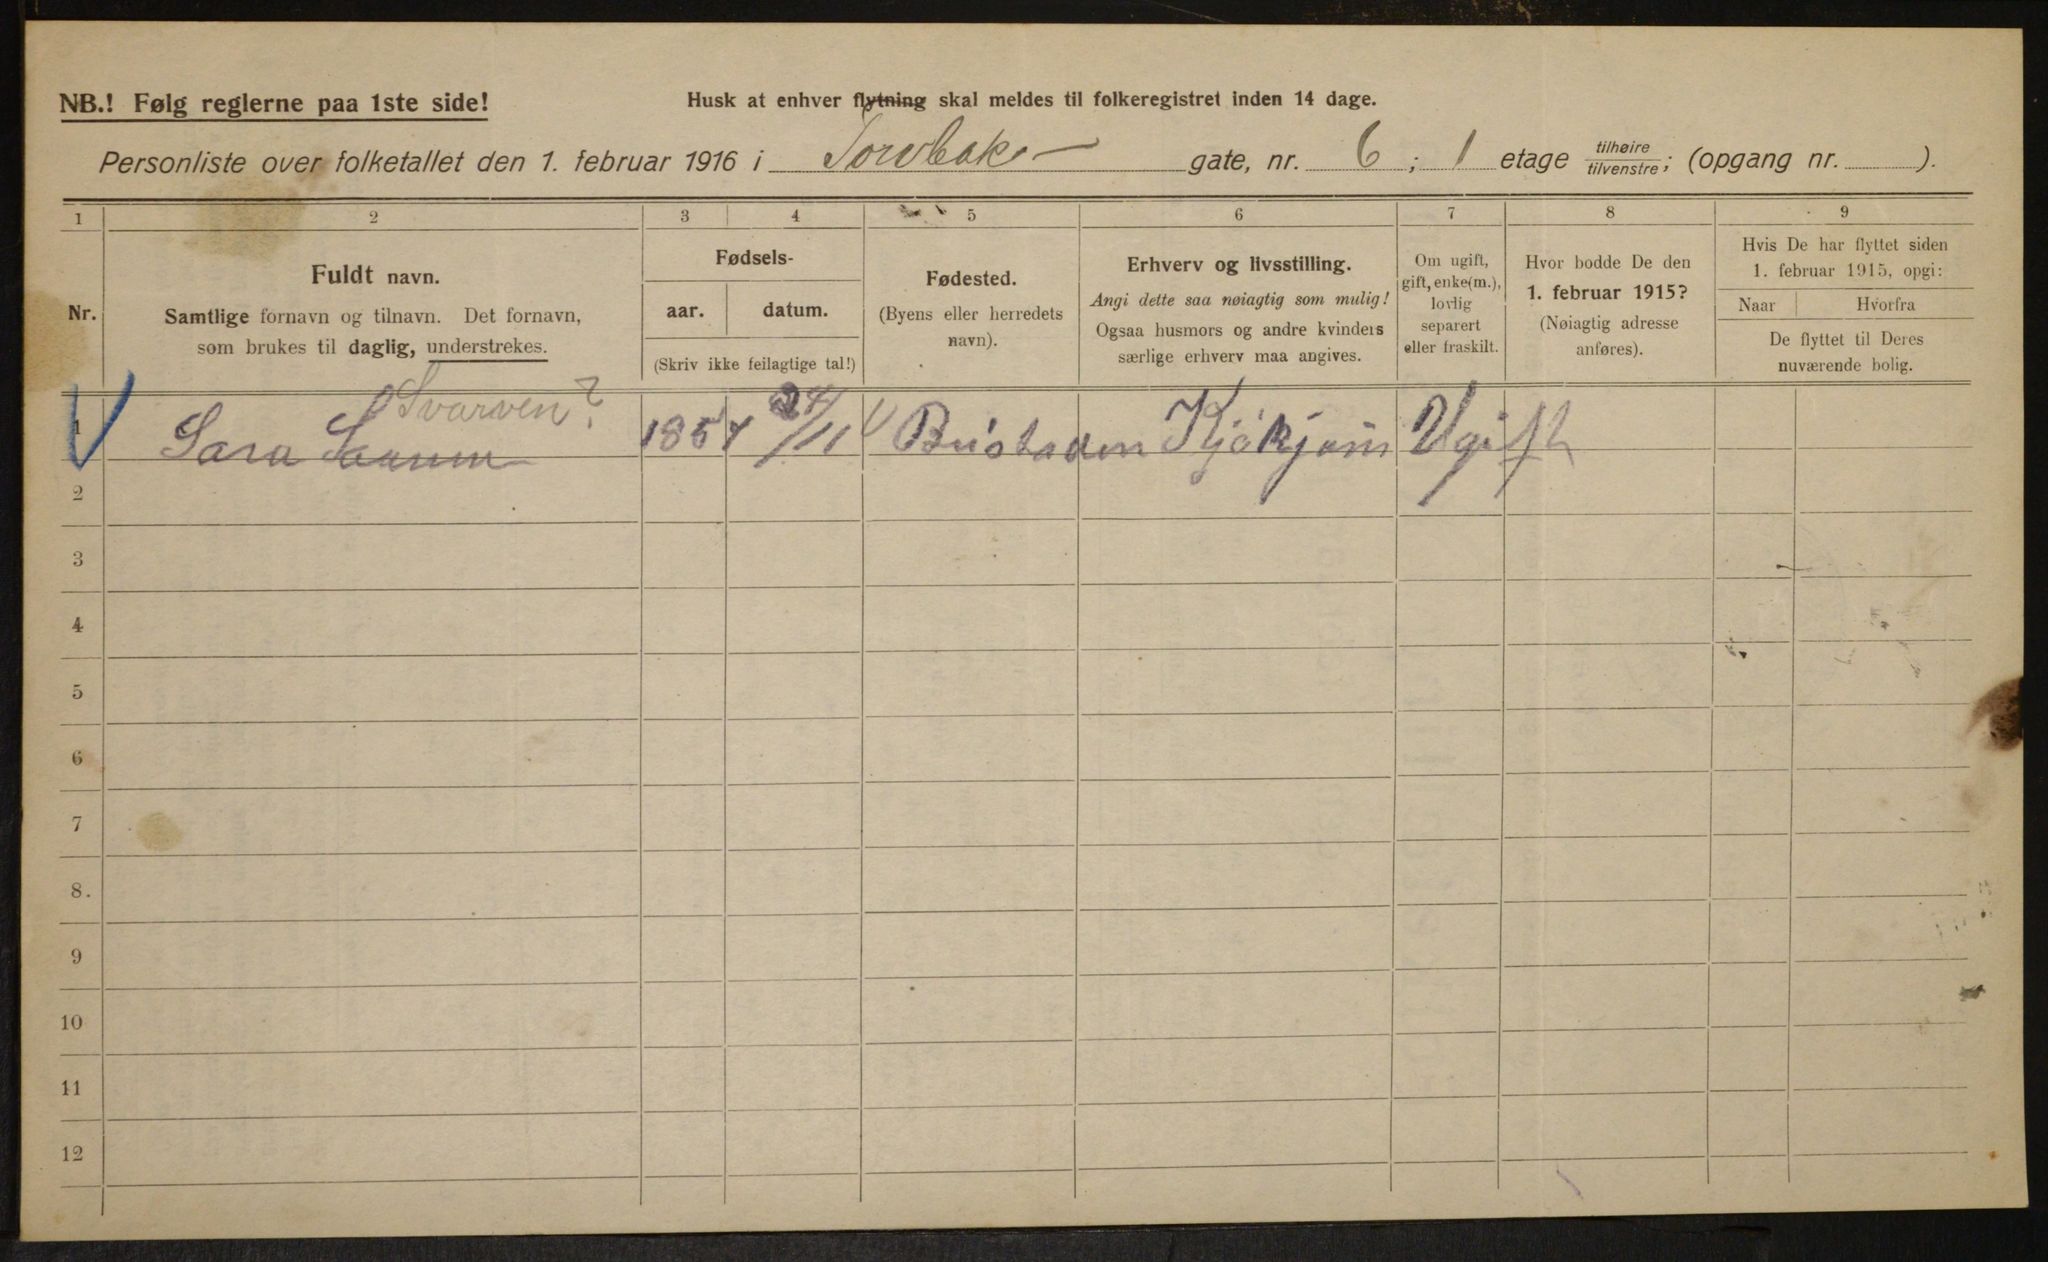 NB.! Følg reglerne paa 1ste side!
Husk at enhver flytning skal meldes til folkeregistret inden 14 dage.
Personliste over folketallet den 1. februar 1916 i Torvbak gate, nr. 6 ; 1 etage tilhøire/tilvenstre; (opgang nr. ........).
1 2 3 4 5 6 7 8 9
Nr.
Fuldt navn.
Samtlige fornavn og tilnavn. Det fornavn,
som brukes til daglig, understrekes.
Fødsels-
aar. datum.
(Skriv ikke feilagtige tal!)
Fødested.
(Byens eller herredets
navn).
Erhverv og livsstilling.
Angi dette saa nøiagtig som mulig!
Ogsaa husmors og andre kvinders
særlige erhverv maa angives.
Om ugift,
gift, enke(m.),
lovlig
separert
eller fraskilt.
Hvor bodde De den
1. februar 1915?
(Nøiagtig adresse
anføres).
Hvis De har flyttet siden
1. februar 1915, opgi:
Naar Hvorfra
De flyttet til Deres
nuværende bolig.
Svarven?
1 Sara 1854 24/11 Bustaden Ugift
2
3
4
5
6
7
8.
9
10
11
12